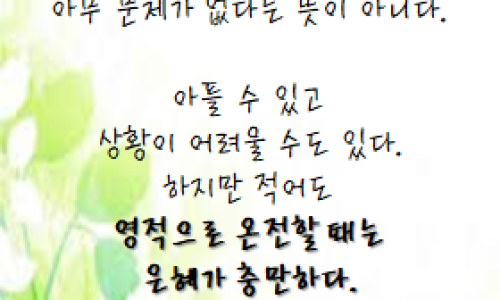 아무 문제가 없다는 뜻이 아니다.
아플 수 있고
상황이 어려울 수도 있다.
하지만 적어도
영적으로 온전할 때는
은혜가 충만하다.